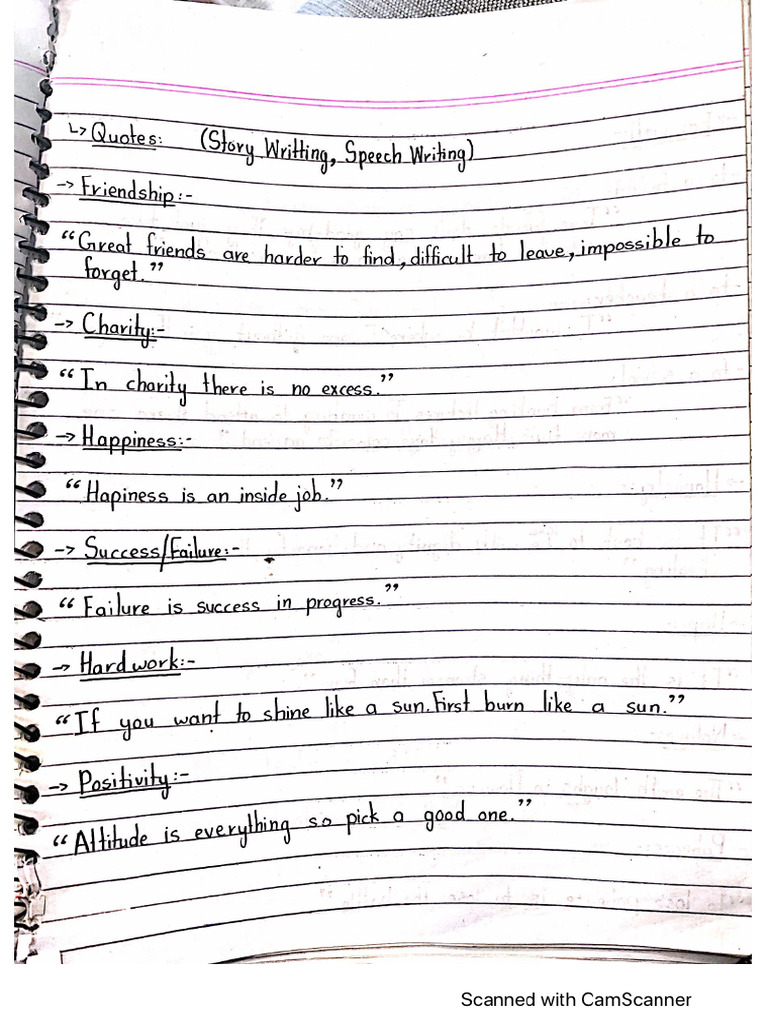 ↳ Quotes: (Story Writting, Speech Writing)
→ Friendship:-
“Great friends are harder to find, difficult to leave, impossible to
forget.”
→ Charity:-
“In charity there is no excess.”
→ Happiness:-
“Hapiness is an inside job.”
→ Success/Failure:-
“Failure is success in progress.”
→ Hardwork:-
“If you want to shine like a sun. First burn like a sun.”
→ Positivity:-
“Attitude is everything so pick a good one.”
Scanned with CamScanner